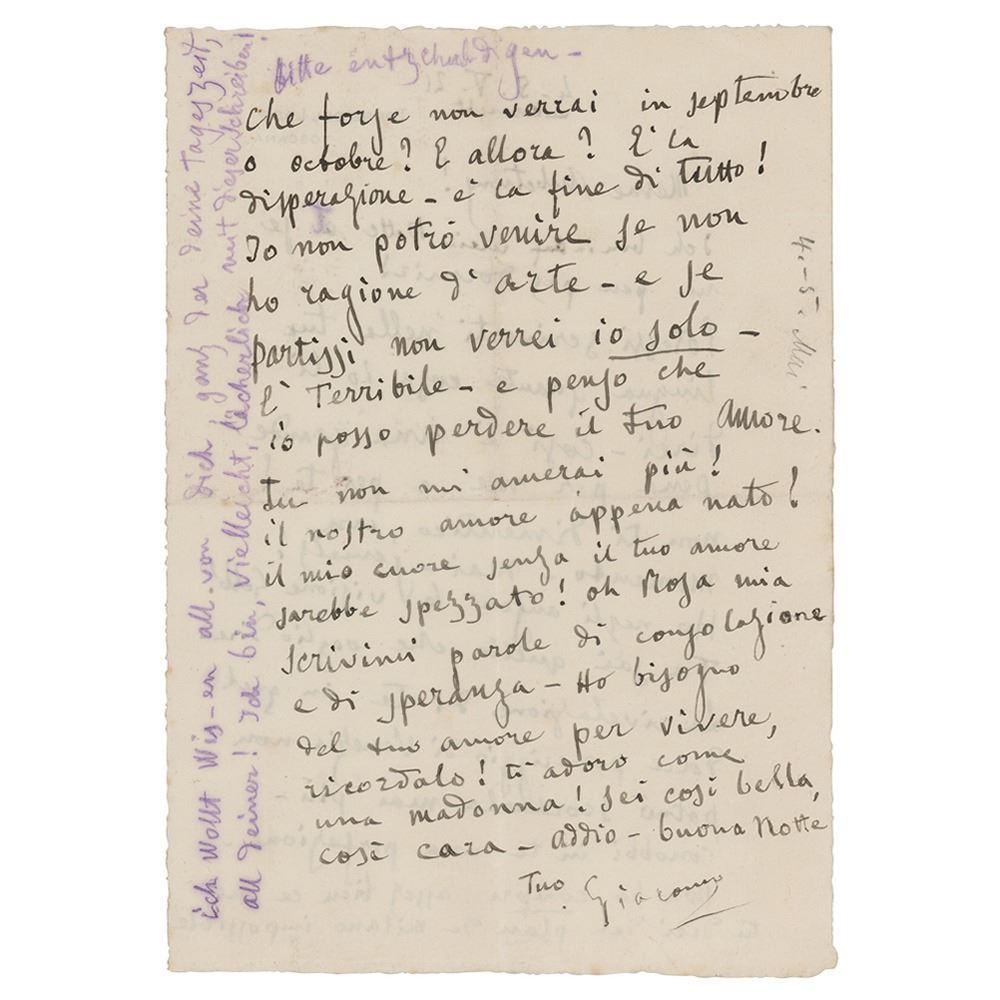 bitte entzchuldigen -
che forse non verrai in septembre
o octobre? E allora? E' la
disperazione - e' la fine di tutto!
Io non potrò venire se non
ho ragione d'arte - e se
partissi non verrei io solo -
E' Terribile - e penso che
io posso perdere il tuo amore.
tu non mi amerai più!
il nostro amore appena nato!
il mio cuore senza il tuo amore
sarebbe spezzato! oh Rosa mia
scrivimi parole di consolazione
e di speranza - Ho bisogno
del tuo amore per vivere,
ricordalo! ti adoro come
una madonna! Sei così bella,
così cara - addio - buona Notte
Tuo
Giacomo
ich Wollt Wis-en all von dich, ganz der deine Tageszeit,
all deiner! Ich bin, vielleicht, lächerlich mit dieser schreiben!